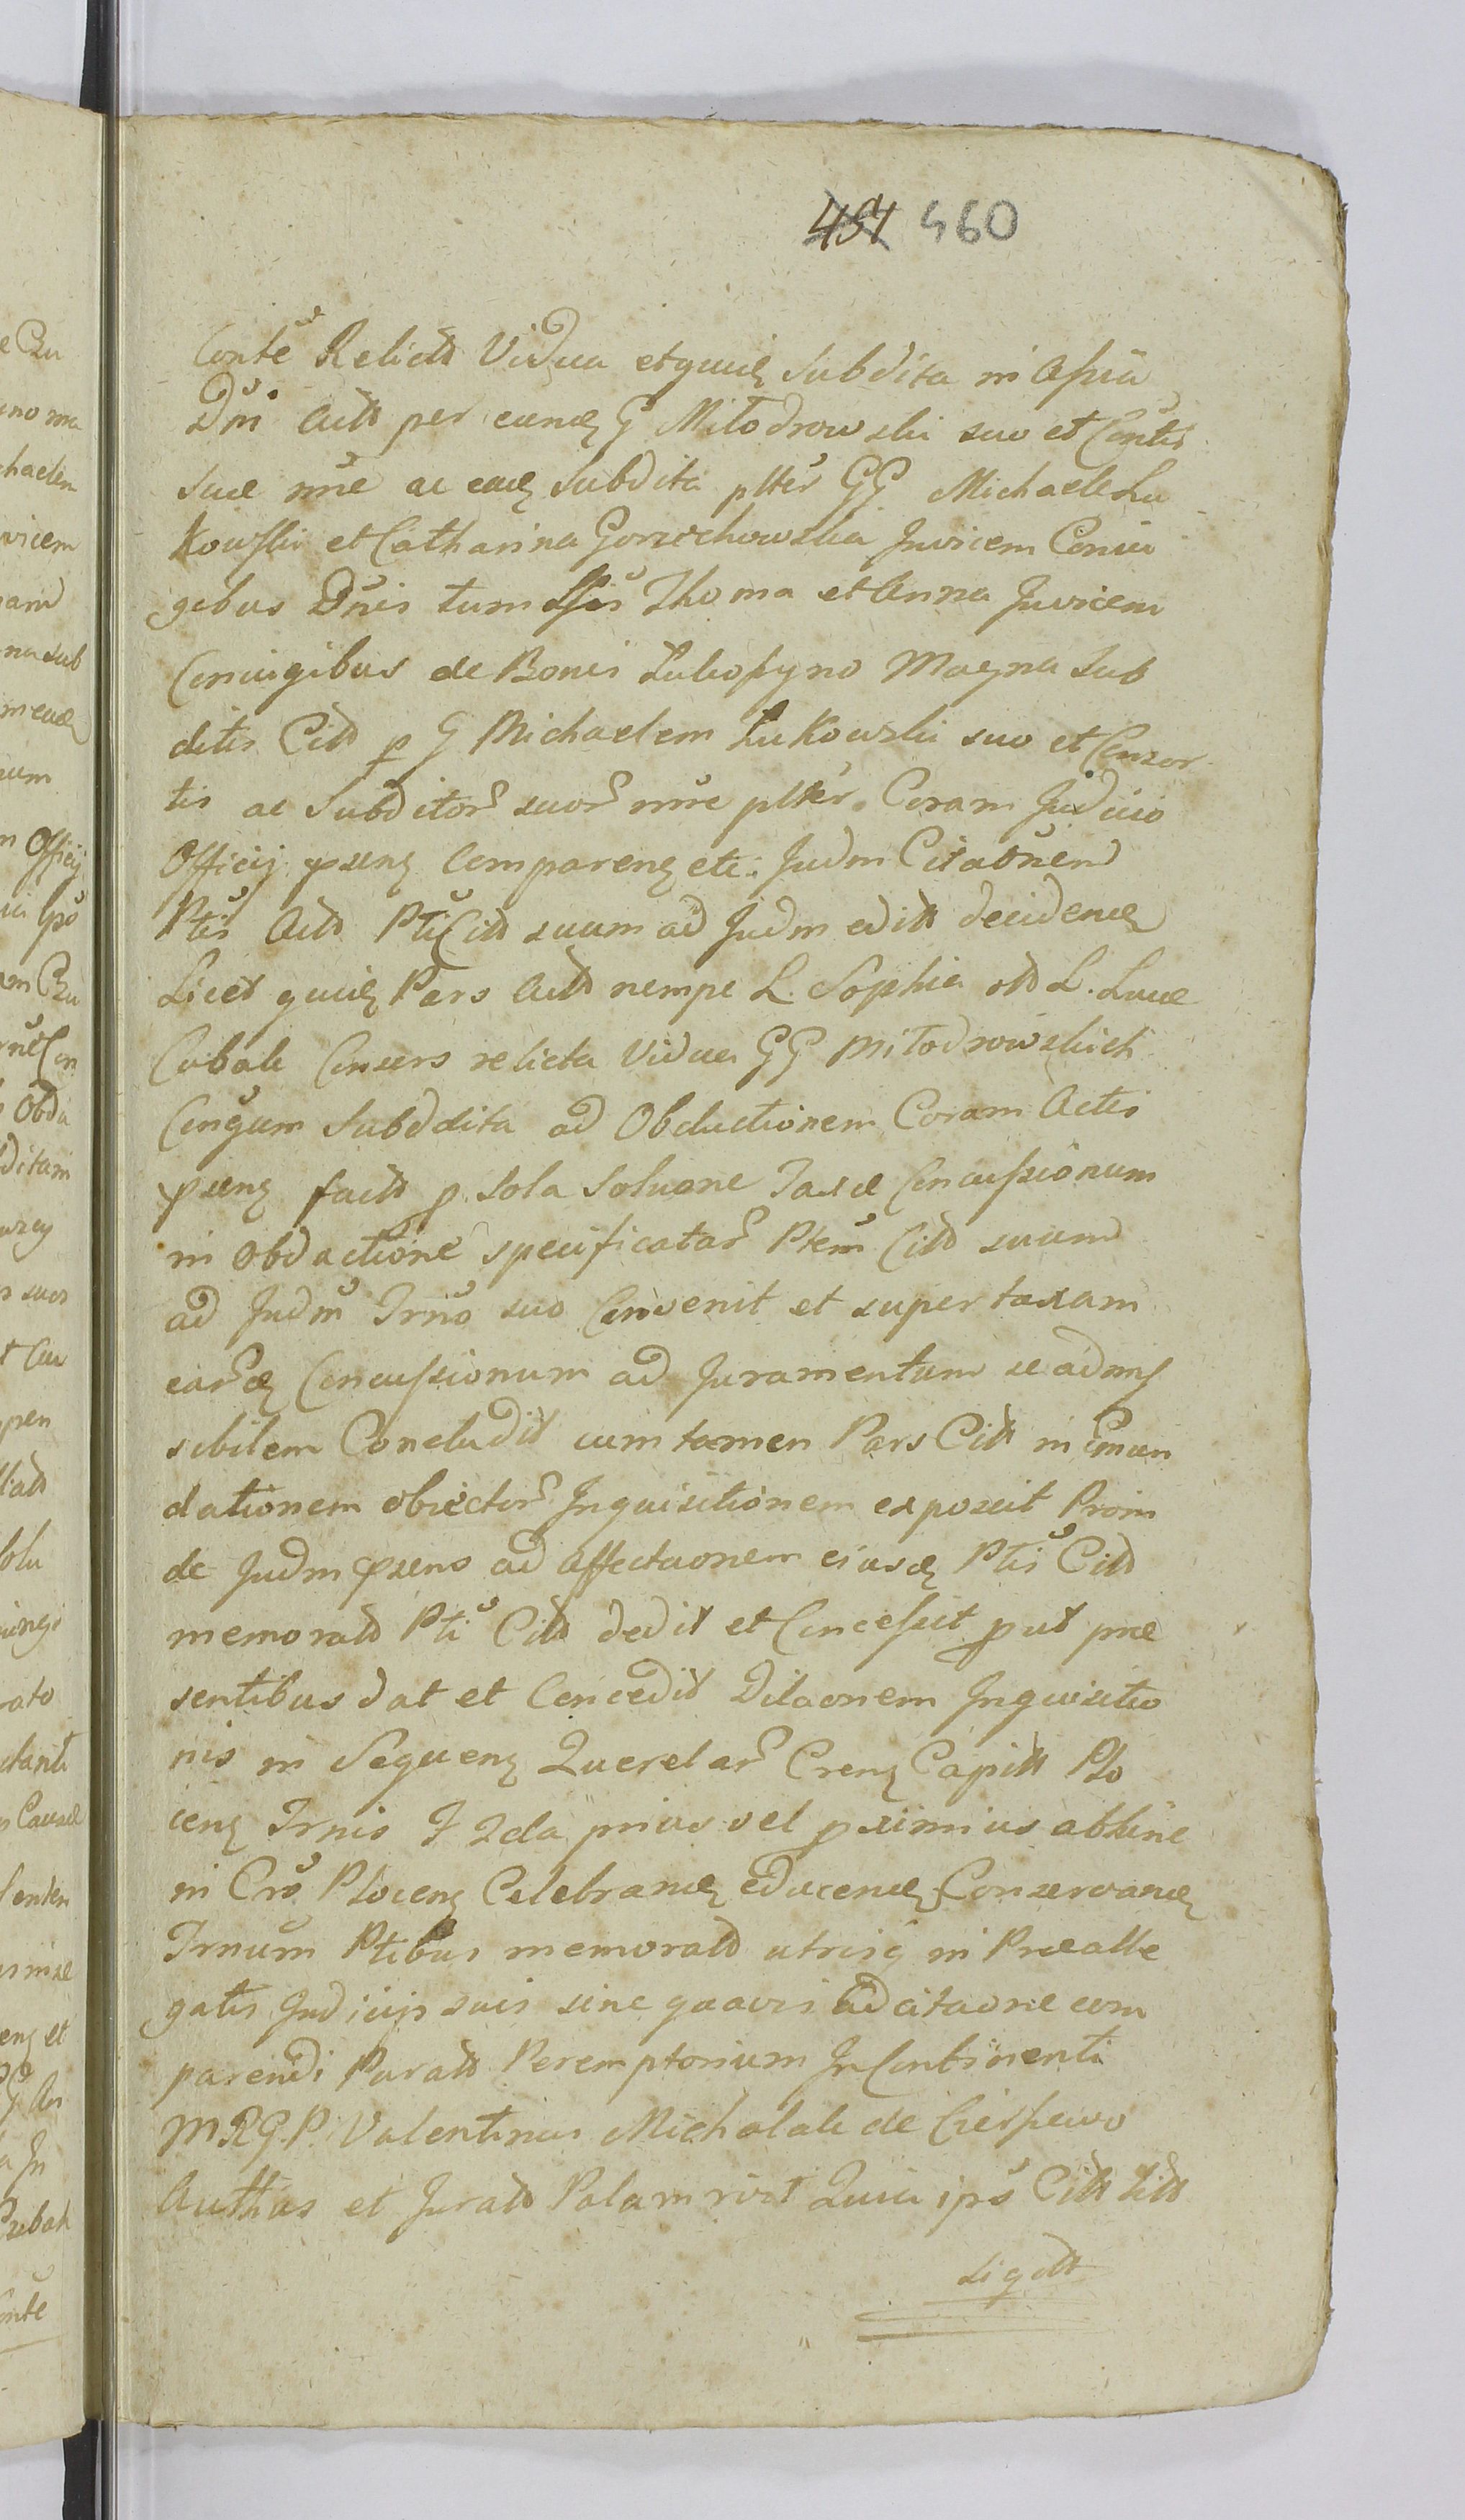 451 460
Conte Relicta Vidua etquiq Subdita in Assia
Dni Actt per eundq G Miłodrowski suo et Contis
suae nne ac eadq Subdita plter GG Michaele Łu
kowski et Catharina Gorzechowska Invicem Coniu
gibus Dnis tum Thoma et Anna Invicem
Coniugibus de Bonis Lukoszyno Magna Sub
ditis Citt p G Michaelem Łukowski suo et Consor
tis ac Subditor suor nne plter. Coram Judicio
Officij psenq Comparenq etc: Judm Citatnem
Ptis Actt Pti Citt suam ad Judm editt decidendq
Licet quidq Pars Actt nempe L. Sophia ott L. Lucae
Cabale Consors relicta Vidua GG Miłodrowskich
Congum Subddita ad Obductionem Coram Actis
psenq factt p sola Soluone Taxae Concussionum
in Obdactione specificatar Ptem Citt suam
ad Judm Trno suo Convenit et super taxam
eardq Concussionum ad Juramentum se admis
sibilem Concludit cum tamen Pars Citt in Emun
dationem obiector Inquisitionem exposcit Proin
de Judm psens ad affectaonem eiusdq Ptis Citt
memoratt Pti Citt dedit et Concessit put prae
sentibus dat et Concedit Dilaonem Inquisitio
nis in Sequenq Querelar Crenq Capitt Plo
cenq Trnis F 2da prius vel pximius abhinc
in Cro Plocenq Celebrandq educendq Conservandq
Trnum Ptibus memoratt utrisq in Praealle
gatis Judicijs suis sine quavis adcitaone com
parendi Paratt Peremptorium In Continenti
MRGP. Valentinus Michalak de
Authas et Juratt Palam rivit Quia ips Citt Litt
sigtt